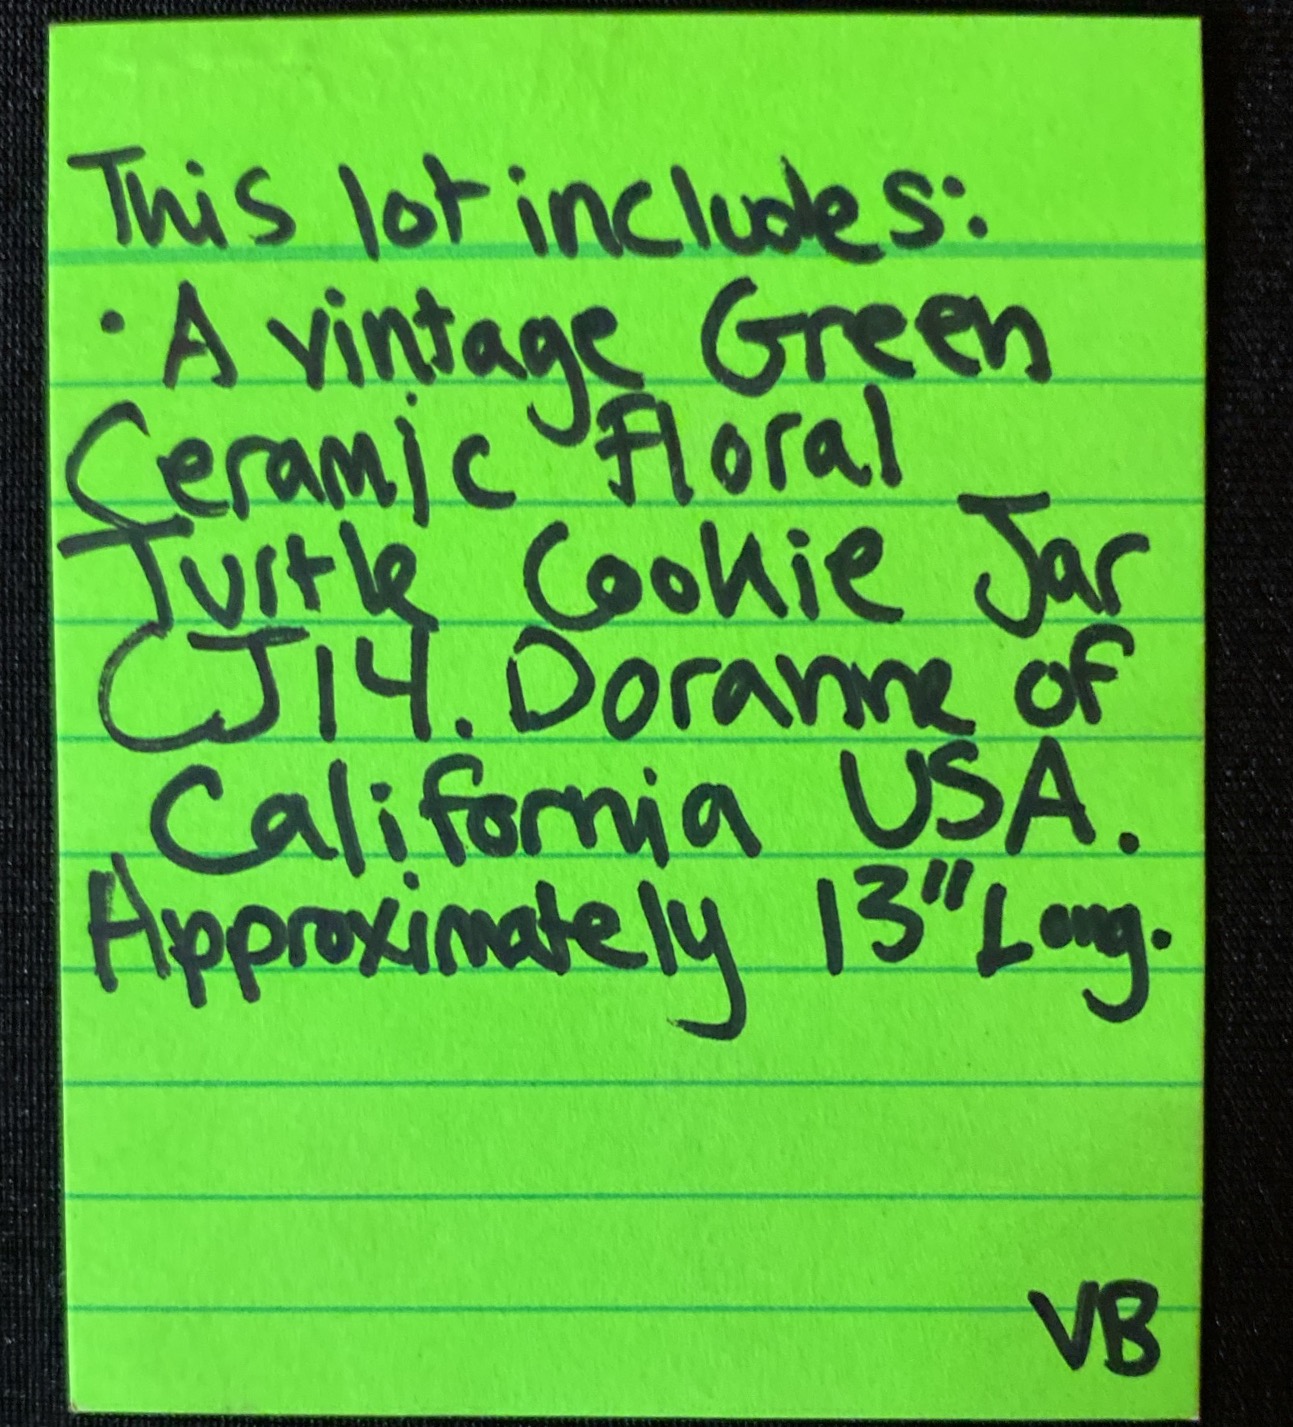 This lot includes:
• A vintage Green
Ceramic Floral
Turtle Cookie Jar
CJ14. Doranne of
California USA.
Approximately 13" Long.
VB